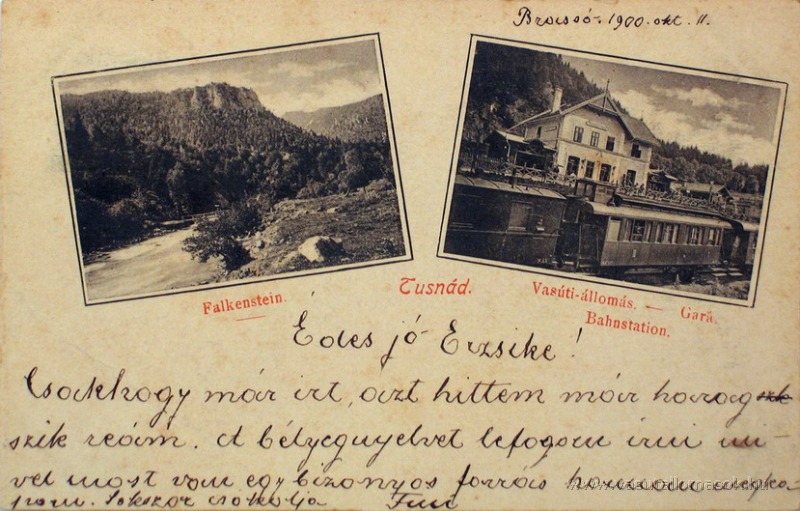 Brassó. 1900. okt. 11.
Falkenstein.
Tusnád.
Vasúti-állomás. — Gară.
Bahnstation.
Édes jó Erzsike!
Csakhogy már irt, azt hittem már harag
szik reám. A bélyegnyelvet lefogom irni mi-
vel most van egy bizonyos forrás
Sokszor csokolja